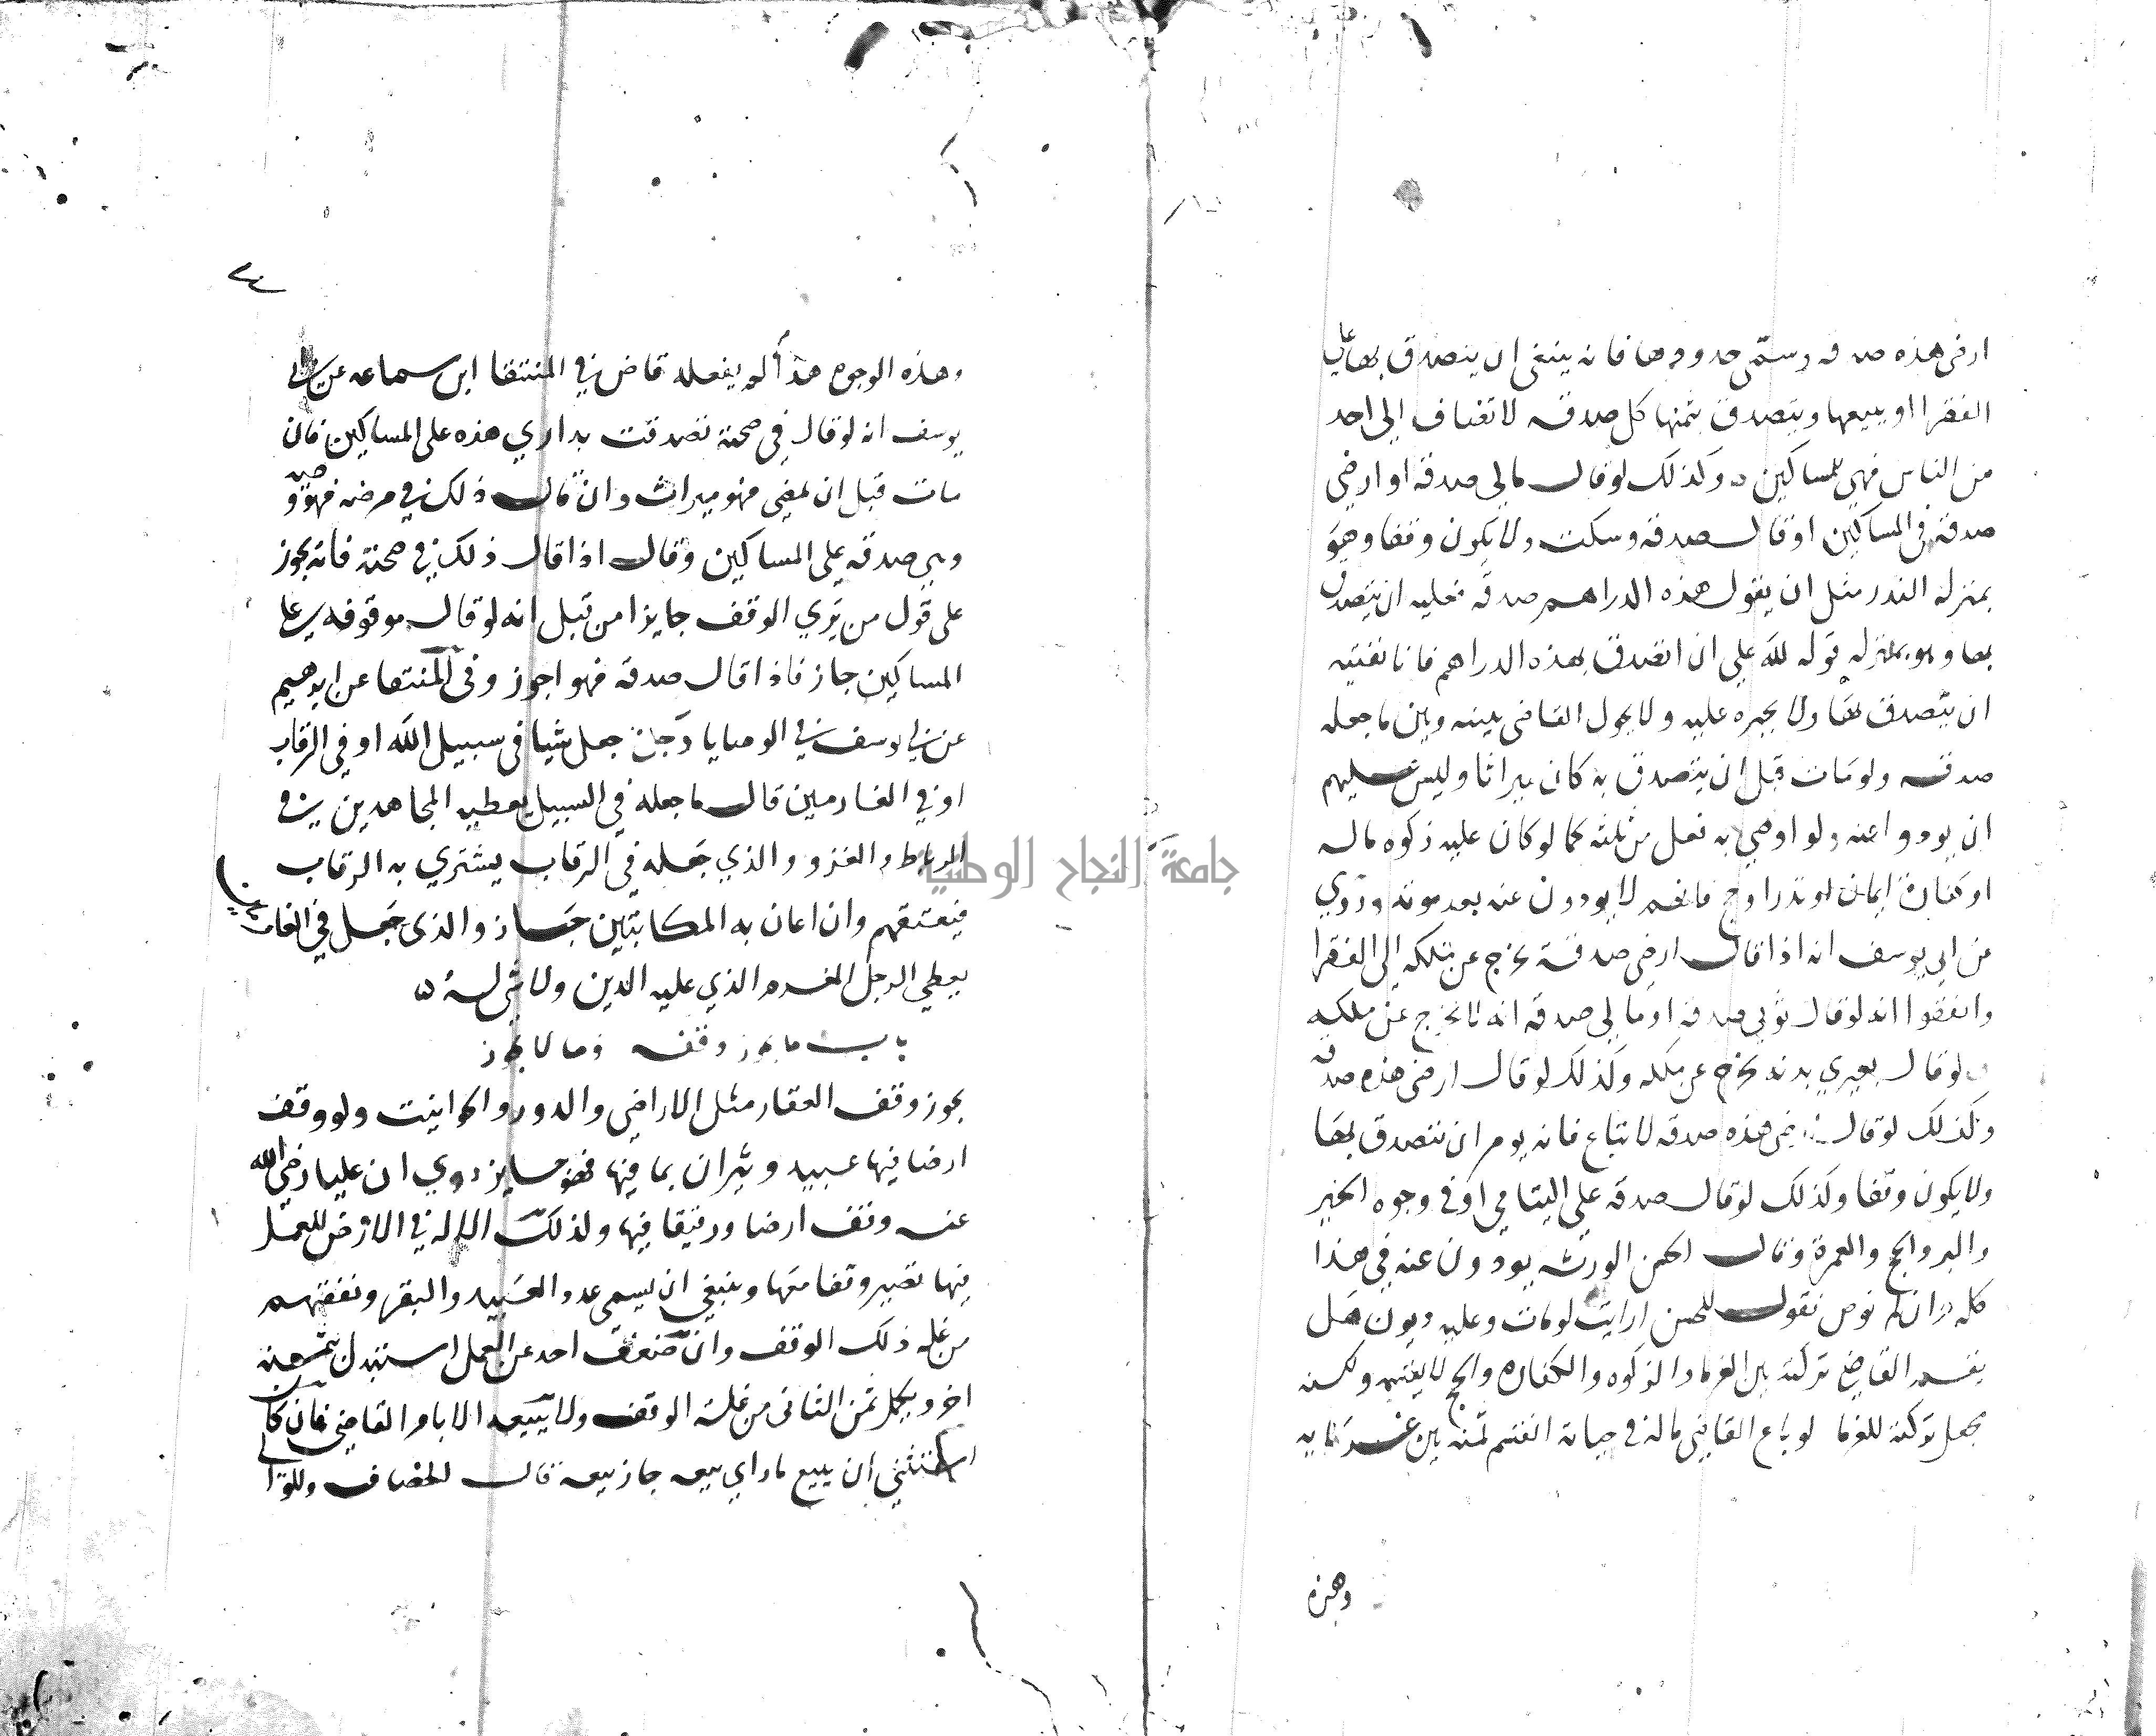 ارضى هذه صدقه وسمّى حدودها فانه ينبغى ان يتصدق بها على
الفقرا او يبيعها ويتصدق بثمنها كل صدقه لا تضاف الى احد
من الناس فهي للمساكين وكذلك لو قال مالي صدقة او ارضي
صدقة في المساكين او قال صدقه وسكت ولا يكون وقفا وهو
بمنزله النذر مثل ان يقول هذه الدراهم صدقه فعليه ان يتصدق
بها وهو بمنزله قوله لله علي ان اتصدق بهذه الدراهم فانا نفتيه
ان يتصدق بها ولا يجبره عليه ولا يحول القاضى بينه وبين ما جعله
صدقه ولو مات قبل ان يتصدق به كان ميراثا وليس عليهم
ان يودوا عنه ولو اوصي به فعل من ثلثه كما لو كان عليه زكوه ماله
او كفارة ايمان او نذر او حج فانهم لا يودون عنه بعد موته وروي
عن ابي يوسف انه اذا قال ارضي صدقة تخرج عن ملكه الى الفقرا
واتفقوا انه لو قال ثوبي صدقه او مالي صدقه انه لا يخرج عن ملكه
لو قال بعيري بدنه يخرج عن ملكه وكذلك لو قال ارضى هذه صدقه
وكذلك لو قال ارضى هذه صدقه لا تباع فانه يومر ان يتصدق بها
ولا يكون وقفا وكذلك لو قال صدقه علي اليتامي او في وجوه الخير
والبر والحج والعمرة وقال الحسن الورثه يودون عنه في هذا
كله وان لم يوص نقول للحسن ارايت لو مات وعليه ديون هل
يقسم القاضي تركته بين الغرما والزكوه والكفاره والحج لا يقسم ولكنه
يجعل تركته للغرما لو باع القاضي ماله في حياته اقتسم ثمنه بين غرمايه
وهذه
وهذه الوجوه هذا لم يفعله قاض في المنتقا ابن سماعه عن ابي
يوسف انه لو قال في صحته تصدقت بداري هذه على المساكين فان
مات قبل ان يمضي فهو ميراث وان قال ذلك في مرضه فهو وصيه
وهي صدقه علي المساكين وقال اذا قال ذلك في صحته فانه يجوز
على قول من يري الوقف جايزا من قبل انه لو قال موقوفه علي
المساكين جاز فاذا قال صدقة فهو اجوز وفى المنتقا عن ابرهيم
عن ابي يوسف في الوصايا رجل جعل شيا في سبيل الله او في الرقاب
او في الغارمين قال ما جعله في السبيل يعطيه المجاهدين في
الرباط والغزو والذي جعله في الرقاب يشتري به الرقاب
فيعتقهم وان اعان به المكاتبين جاز والذى جعل في الغارمين
يعطي الرجل المغرم الذي عليه الدين ولا شي له
باب ما يجوز وقفه وما لا يجوز
يجوز وقف العقار مثل الاراضي والدور والحوانيت ولو وقف
ارضا فيها عبيد وثيران بما فيها فهو جايز روي ان عليا رضي الله
عنه وقف ارضا ورقيقا فيها ولذلك الاله في الارض للعمل
فيها تصير وقفا معها وينبغي ان يسمي عدد العبيد والبقر ونفقتهم
من غله ذلك الوقف وان ضعف احد عن العمل استبدل بثمنه
اخر ويكمل ثمن الثانى من غلة الوقف ولا يبيعه الا بامر القاضي فان كان
استثني ان يبيع ما راي بيعه جاز بيعه قال الخصاف
جامعة النجاح الوطنية